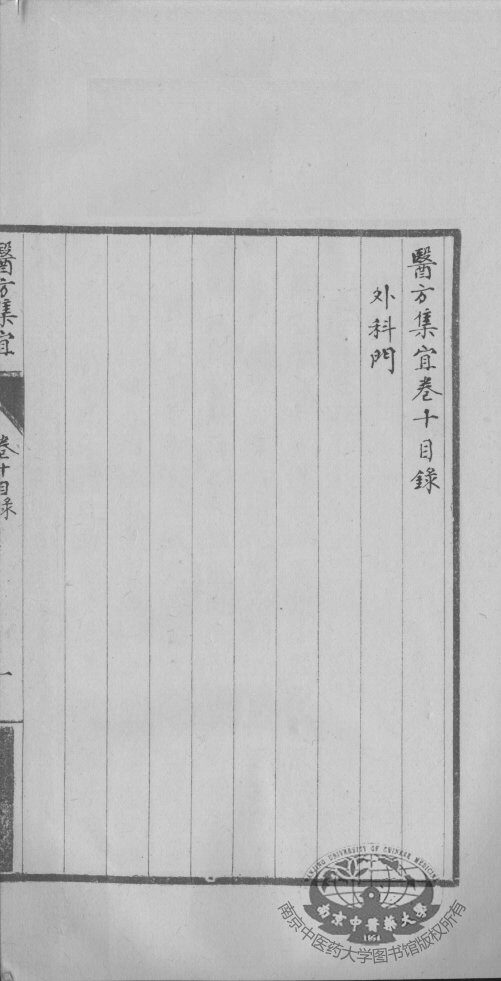 醫方集宜卷十目錄
外科門
醫方集宜
卷十目錄
一
NANJING UNIVERSITY OF CHINESE MEDICINE
南京中醫藥大學
1954
南京中医药大学图书馆版权所有